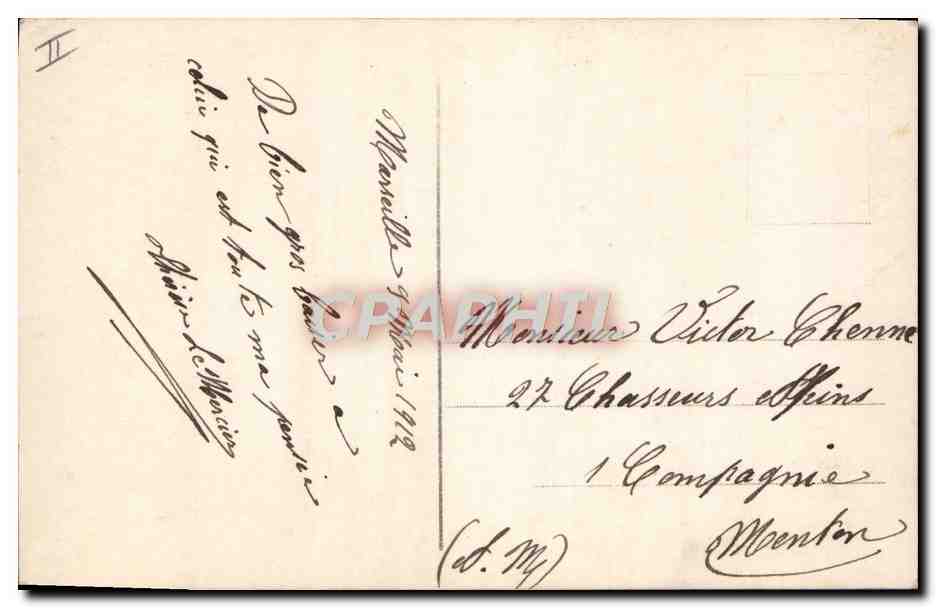 II
Marseille 9 Mai 1912
De bien gros baiser a
celui qui est toute ma pensée
Le Mercier
CPARHTI
Monsieur Victor Chenne
27 Chasseurs Alpins
1 Compagnie
Menton
(A. M)